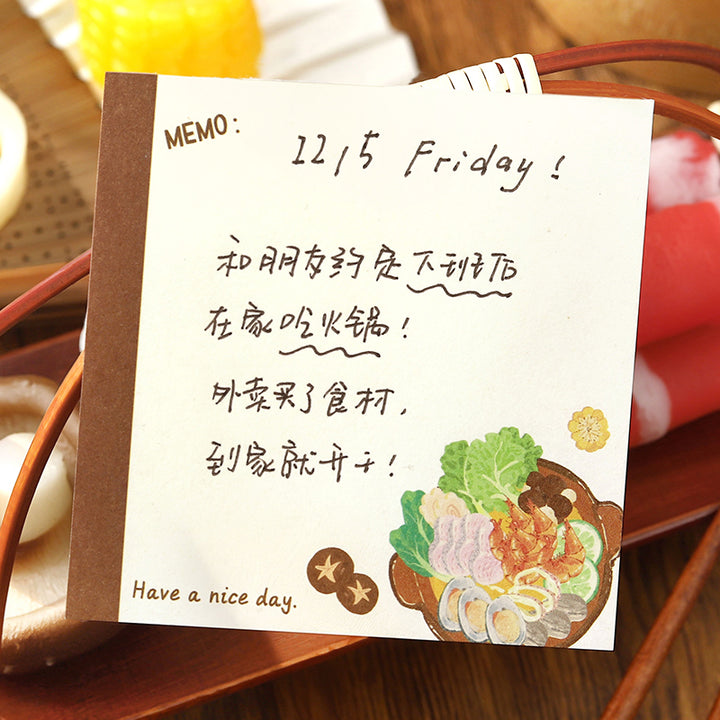 MEMO:
12/5 Friday!
和朋友约定下班后
在家吃火锅!
外卖买了食材,
到家就开干!
Have a nice day.